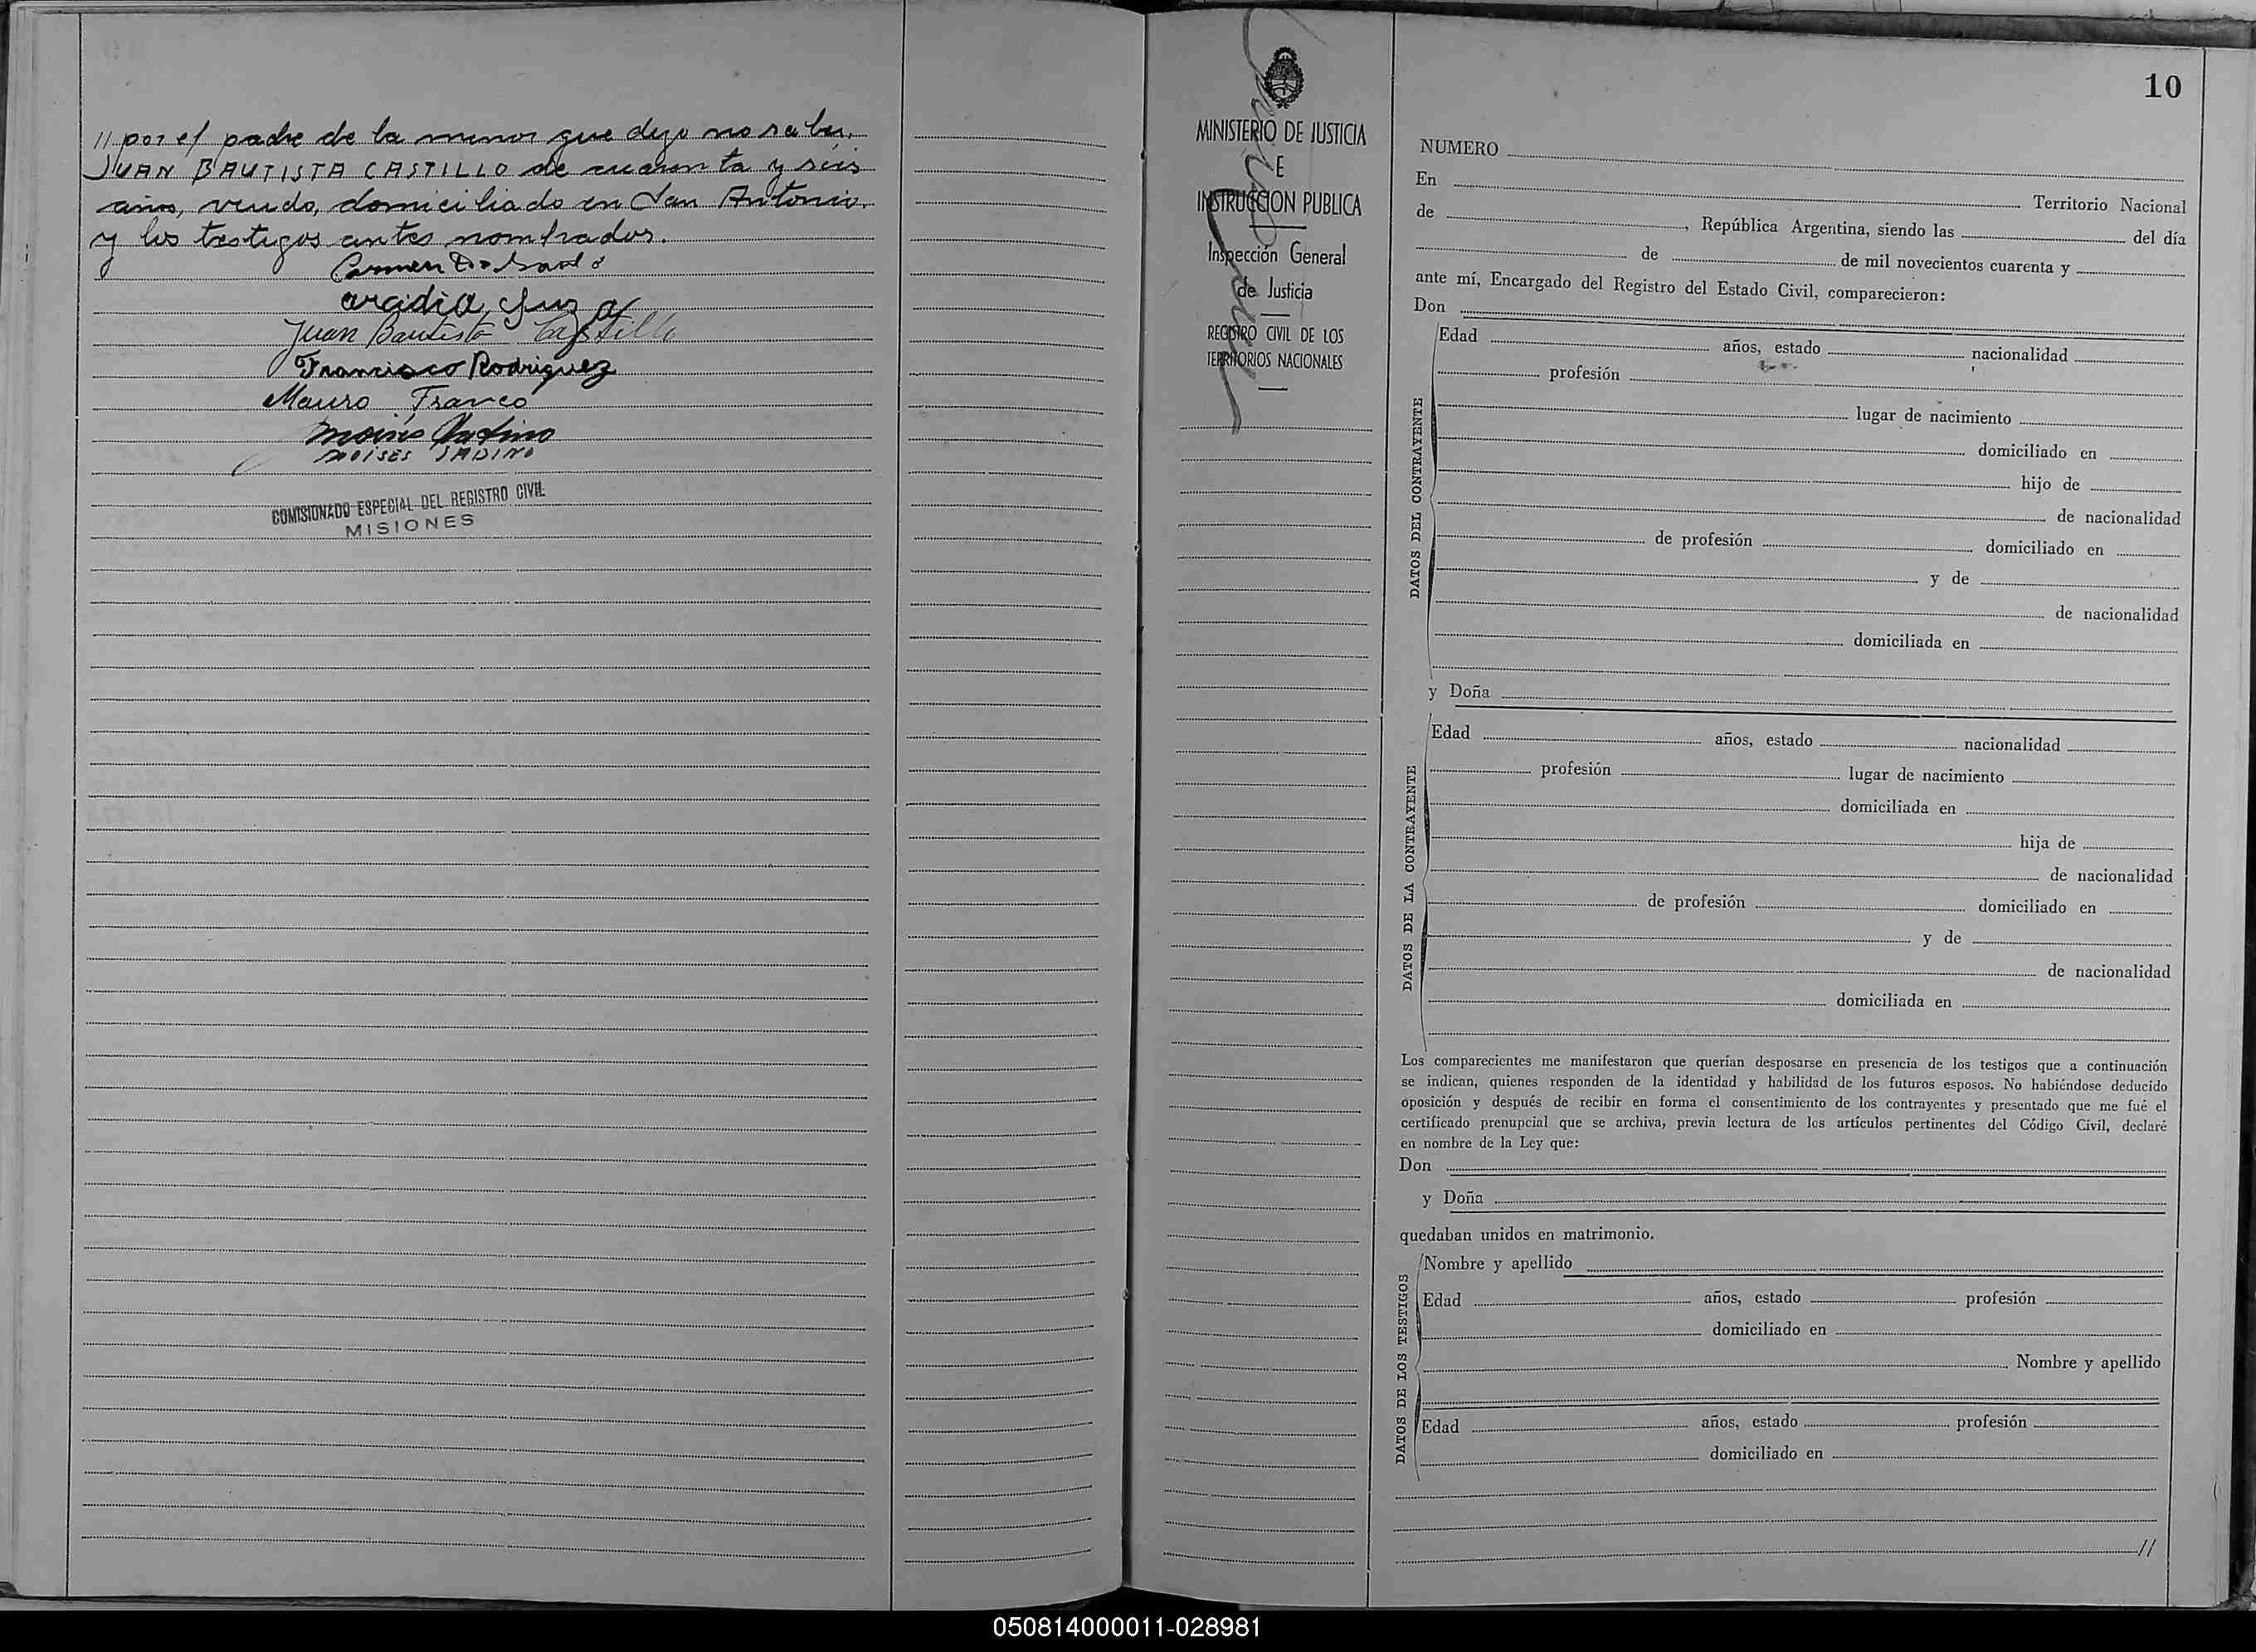 // por el padre de la menor que dijo no saber,
JUAN BAUTISTA CASTILLO de cuarenta y seis
años, viudo, domiciliado en San Antonio,
y los testigos antes nombrados.
Carmen
arcidia
Juan Bautista Castillo
Francisco Rodriguez
Mauro Franco
MOISES
COMISIONADO ESPECIAL DEL REGISTRO CIVIL
MISIONES
MINISTERIO DE JUSTICIA
E
INSTRUCCION PUBLICA
Inspección General
de Justicia
REGISTRO CIVIL DE LOS
TERRITORIOS NACIONALES
10
NUMERO
En Territorio Nacional
de , República Argentina, siendo las del día
de de mil novecientos cuarenta y
ante mí, Encargado del Registro del Estado Civil, comparecieron:
Don
DATOS DEL CONTRAYENTE
Edad años, estado nacionalidad
profesión
lugar de nacimiento
domiciliado en
hijo de
de nacionalidad
de profesión domiciliado en
y de
de nacionalidad
domiciliada en
y Doña
DATOS DE LA CONTRAYENTE
Edad años, estado nacionalidad
profesión lugar de nacimiento
domiciliada en
hija de
de nacionalidad
de profesión domiciliado en
y de
de nacionalidad
domiciliada en
Los comparecientes me manifestaron que querían desposarse en presencia de los testigos que a continuación
se indican, quienes responden de la identidad y habilidad de los futuros esposos. No habiéndose deducido
oposición y después de recibir en forma el consentimiento de los contrayentes y presentado que me fué el
certificado prenupcial que se archiva, previa lectura de los artículos pertinentes del Código Civil, declaré
en nombre de la Ley que:
Don
y Doña
quedaban unidos en matrimonio.
DATOS DE LOS TESTIGOS
Nombre y apellido
Edad años, estado profesión
domiciliado en
Nombre y apellido
Edad años, estado profesión
domiciliado en
//
050814000011-028981